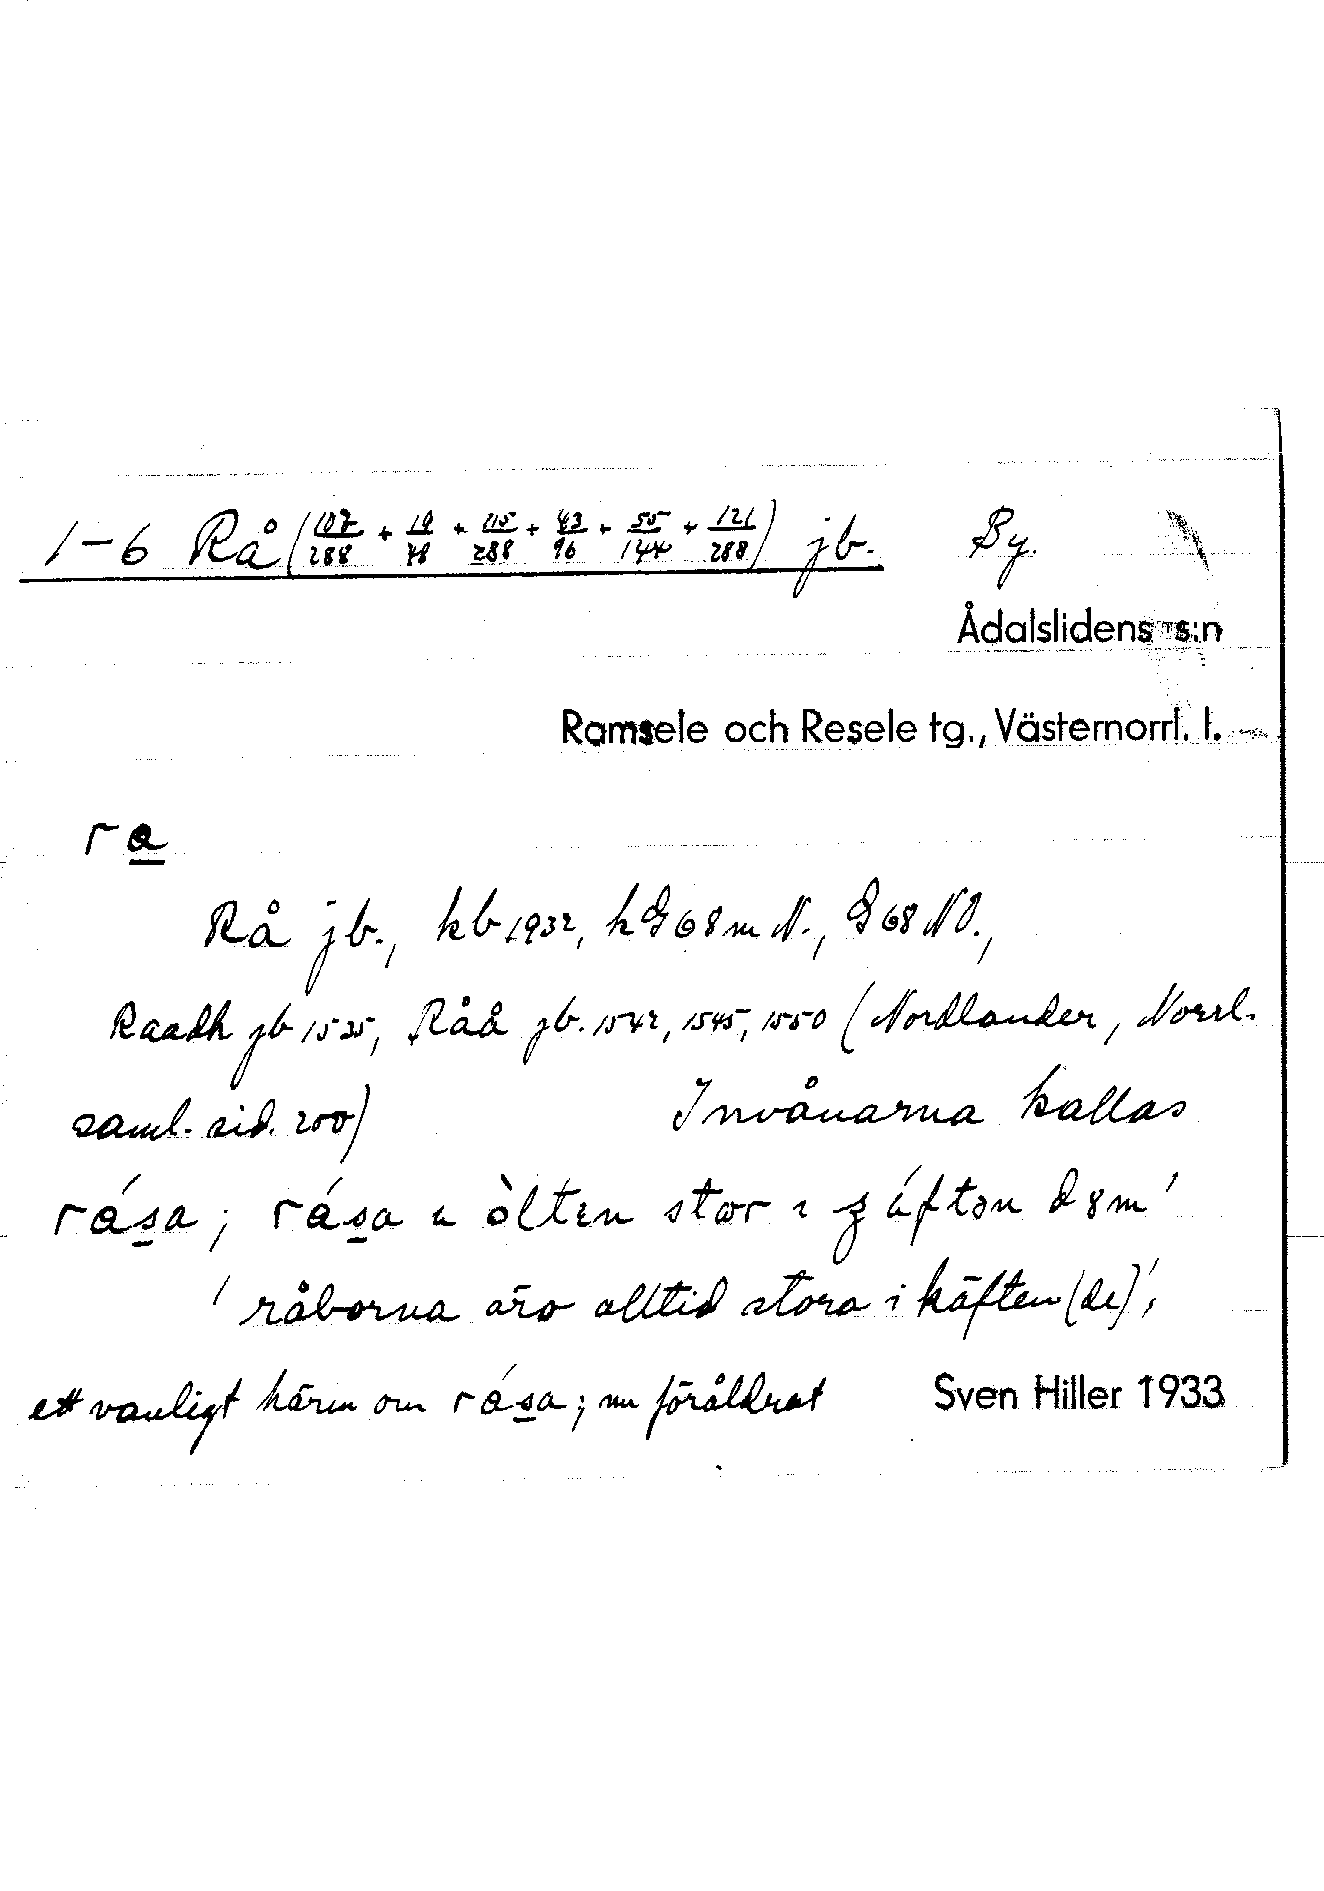 1-6 Rå (107/288 + 19/48 + 115/288 + 43/96 + 55/144 + 121/288) jb. By.
Ådalslidens s:n
Ramsele och Resele tg., Västernorrl. l.
ra
Rå jb., kb 1932, hG68mN., G68NO.,
Raadh jb 1535, Råå jb. 1542, 1545, 1550 (Nordlander, Norrl.
saml. sid. 200) Invånarna kallas
råsa; råsa stor i
' råborna äro alltid stora i käften (de)',
ett vanligt härm om råsa; nu föråldrat Sven Hiller 1933